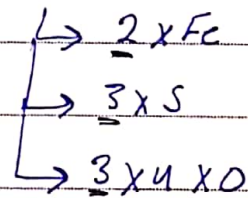 → 2 x Fe
→ 3 x S
→ 3 x 4 x O